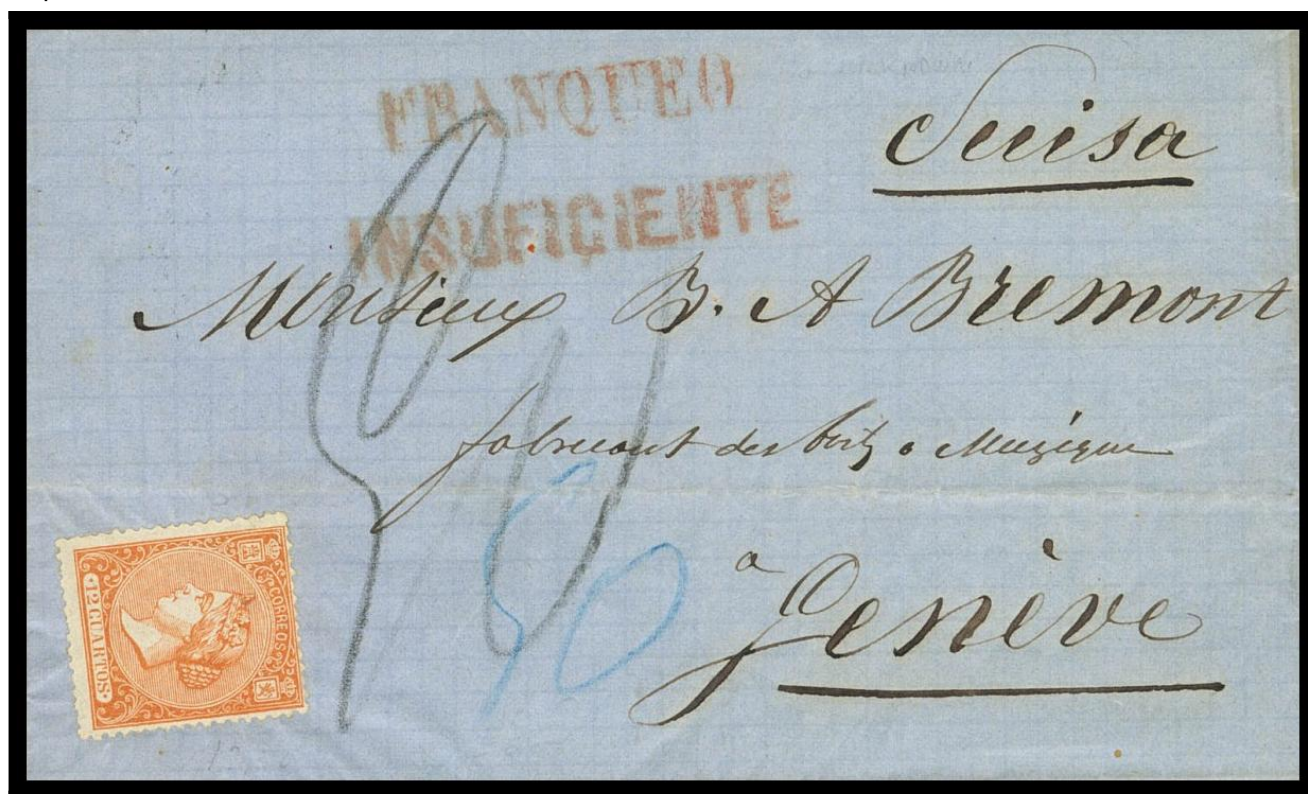 FRANQUEO
INSUFICIENTE
Suisa
Monsieur B. A Bremont
fabricant des a Muzique
a Genève
CORREOS
12 CUARTOS